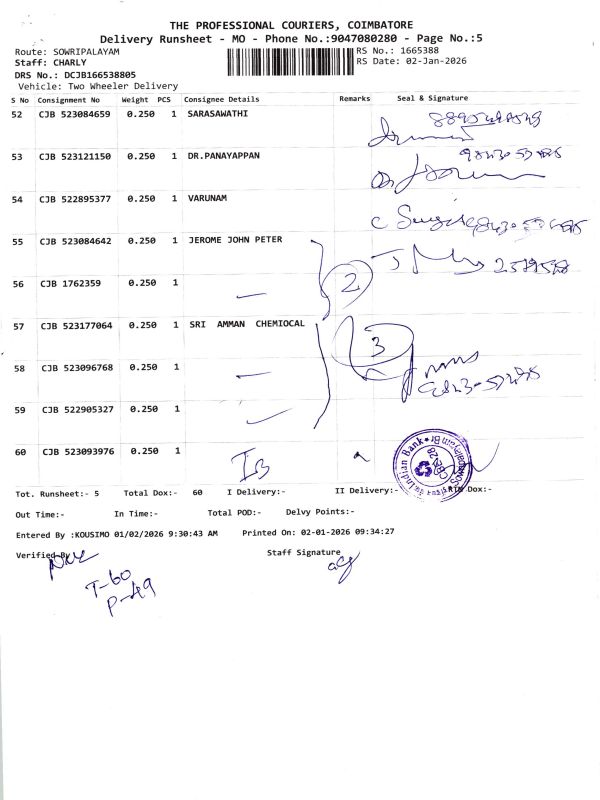 THE PROFESSIONAL COURIERS, COIMBATORE
Delivery Runsheet - MO - Phone No.:9047080280 - Page No.:5
Route: SOWRIPALAYAM
RS No.: 1665388
Staff: CHARLY
RS Date: 02-Jan-2026
DRS No.: DCJB166538805
Vehicle: Two Wheeler Delivery
S No Consignment No Weight PCS Consignee Details Remarks Seal & Signature
52 CJB 523084659 0.250 1 SARASWATHI
53 CJB 523121150 0.250 1 DR.PANAYAPPAN
54 CJB 522895377 0.250 1 VARUNAM
55 CJB 523084642 0.250 1 JEROME JOHN PETER
56 CJB 1762359 0.250 1
2
57 CJB 523177064 0.250 1 SRI AMMAN CHEMIOCAL
3
58 CJB 523096768 0.250 1
59 CJB 522905327 0.250 1
60 CJB 523093976 0.250 1 IB
Indian Bank
Tot. Runsheet:- 5 Total Dox:- 60 I Delivery:- II Delivery:- Dox:-
Out Time:- In Time:- Total POD:- Delvy Points:-
Entered By :KOUSIMO 01/02/2026 9:30:43 AM Printed On: 02-01-2026 09:34:27
Verified By
Staff Signature
T-60
P-49